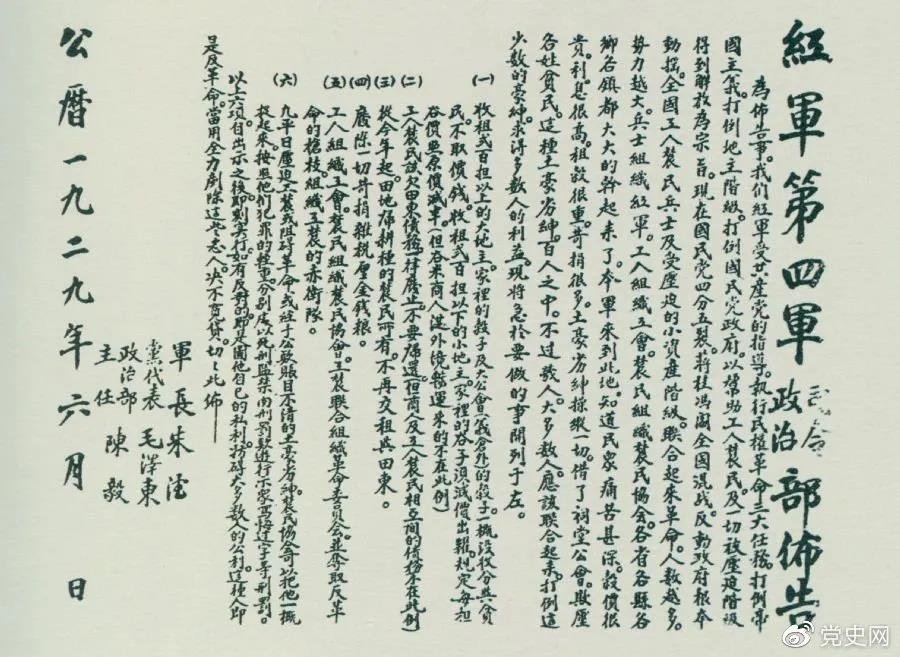 紅軍第四軍司令政治部佈告
為佈告事。我們紅軍受共產党的指導。執行民權革命三大任務。打倒帝
國主義。打倒地主階級。打倒國民党政府。以幫助工人農民及一切被壓迫階級
得到解放為宗旨。現在國民党四分五裂。蔣桂馮閻全國混战。反動政府根本
動搖。全國工人農民兵士及受壓迫的小資產階級。聯合起來革命。人数越多。
势力越大。兵士組織紅軍。工人組織工會。農民組織農民協會。各省各縣各
鄉各鎮都大大的幹起来了。本軍来到此地。知道民衆痛苦甚深。穀價很
貴。利息很高。租穀很重。苛捐很多。土豪劣紳操縱一切。借了祠堂公會。欺壓
各姓貧民。這種土豪劣紳。百人之中。不过数人。大多数人應該联合起来。打倒這
少数的豪紳。求得多数人的利益。現将急於要做的事開列于左。
(一) 收租弍百担以上的大地主。家裡的穀子及大公會(義倉外)的穀子。一概沒收分與貧
民。不取價錢。收租弍百担以下的小地主。家裡的谷子須減價出糶。規定每担
谷價照原價減半。(但谷米商人從外境輸運来的不在此例)
(二) 工人農民該欠田東債務。一律廢止。不要歸還。(但商人及工人農民相互间的债務不在此例)
(三) 從今年起。田地歸耕種的農民所有。不再交租與田東。
(四) 廢除一切苛捐雜稅厘金錢粮。
(五) 工人組織工會。農民組織農民協會。工農联合組織革命委員会。並奪取反革
命的槍枝。組織工農的赤衛隊。
(六) 凡平日壓迫工農。或阻碍革命。或經手公款賬目不清的土豪劣紳。農民協会可以把他一概
捉起来。按照他们犯罪的輕重。分别處以死刑監禁肉刑罰款遊行示衆寫悔过字等刑罰。
以上六項。自出示之後。即刻实行。如有反對的。即是圖他自己的私利。妨碍大多数人的公利。這種人即
是反革命。當用全力剷除這些忘人。决不寬贷。切切此佈
軍長 朱德
黨代表 毛澤東
政治部主任 陳毅
公曆一九二九年六月 日
党史网